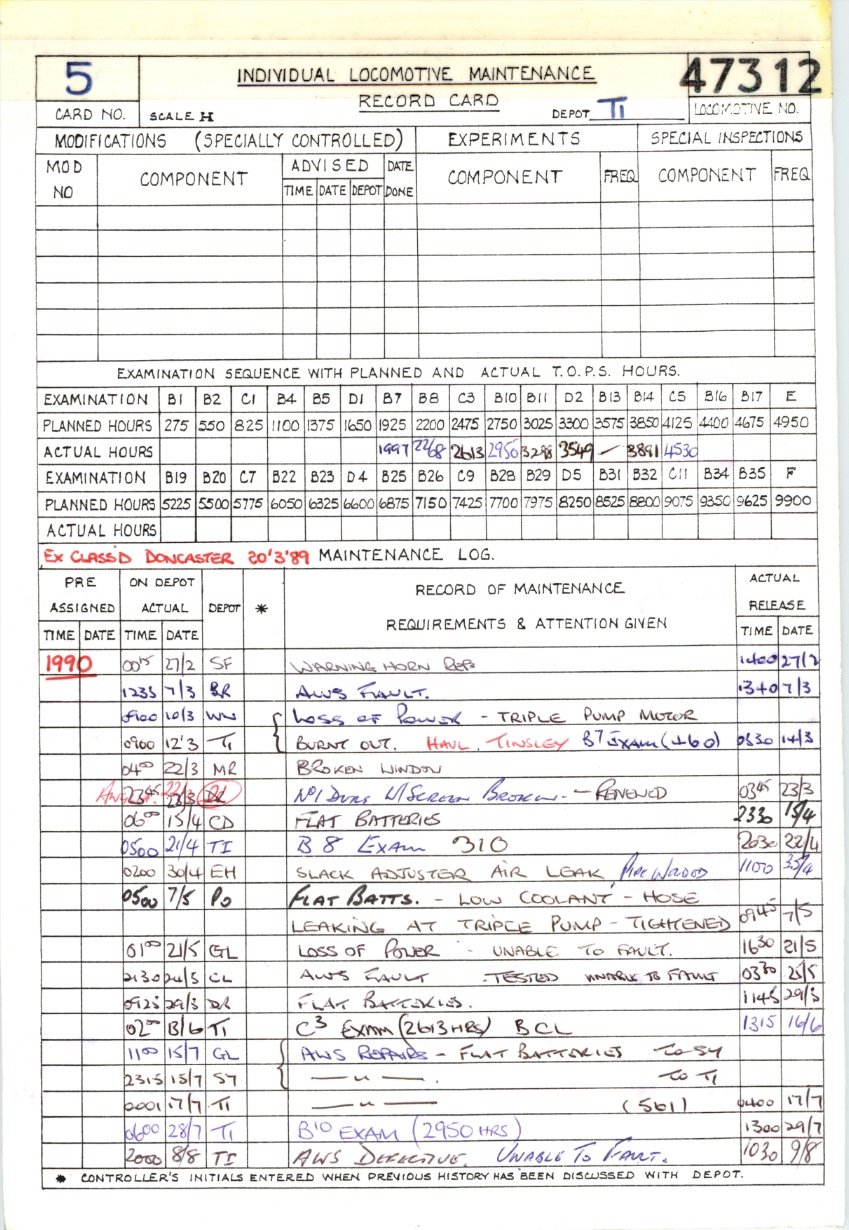 5 INDIVIDUAL LOCOMOTIVE MAINTENANCE 47312
RECORD CARD
CARD NO. SCALE H DEPOT TI LOCOMOTIVE NO.
MODIFICATIONS (SPECIALLY CONTROLLED) EXPERIMENTS SPECIAL INSPECTIONS
MOD NO COMPONENT ADVISED DATE DONE COMPONENT FREQ COMPONENT FREQ
TIME DATE DEPOT
EXAMINATION SEQUENCE WITH PLANNED AND ACTUAL T.O.P.S. HOURS.
EXAMINATION B1 B2 C1 B4 B5 D1 B7 B8 C3 B10 B11 D2 B13 B14 C5 B16 B17 E
PLANNED HOURS 275 550 825 1100 1375 1650 1925 2200 2475 2750 3025 3300 3575 3850 4125 4400 4675 4950
ACTUAL HOURS 1997 2268 2613 2950 3298 3549 — 3891 4530
EXAMINATION B19 B20 C7 B22 B23 D4 B25 B26 C9 B28 B29 D5 B31 B32 C11 B34 B35 F
PLANNED HOURS 5225 5500 5775 6050 6325 6600 6875 7150 7425 7700 7975 8250 8525 8800 9075 9350 9625 9900
ACTUAL HOURS
EX CLASS'D DONCASTER 20'3'89 MAINTENANCE LOG.
PRE ASSIGNED ON DEPOT ACTUAL DEPOT * RECORD OF MAINTENANCE REQUIREMENTS & ATTENTION GIVEN ACTUAL RELEASE
TIME DATE TIME DATE TIME DATE
1990 0015 27/2 SF WARNING HORN REPS 1400 27/2
1235 7/3 BR AWS FAULT. 1340 7/3
10/3 WN LOSS OF POWER - TRIPLE PUMP MOTOR
0900 12'3 TI BURNT OUT. HAUL. TINSLEY B7 EXAM (+60) 0330 14/3
0400 22/3 MR BROKEN WINDOW
2345 22/3 No1 W/SCREEN BROKEN. - RENEWED 0345 23/3
0600 15/4 CD FLAT BATTERIES 2330 15/4
0500 21/4 TI B8 EXAM 310 2030 22/4
0200 30/4 EH SLACK ADJUSTER AIR LEAK 1100
0500 7/5 PO FLAT BATTS. - LOW COOLANT - HOSE
LEAKING AT TRIPLE PUMP - TIGHTENED 0945 7/5
0100 21/5 GL LOSS OF POWER - UNABLE TO FAULT. 1630 21/5
2130 24/5 CL AWS FAULT . TESTED UNABLE TO FAULT 0330 25/5
0925 FLAT BATTERIES. 1145
0200 13/6 TI C3 EXAM (2613 HRS) BCL 1315 16/6
1100 15/7 GL AWS REPAIRS - FLAT BATTERIES TO SY
2315 15/7 SY — " — . TO TI
0001 17/7 TI — " — (561) 0400 17/7
0600 28/7 TI B10 EXAM (2950 HRS) 1300 29/7
2000 8/8 TI AWS DEFECTIVE. UNABLE TO FAULT. 1030 9/8
* CONTROLLER'S INITIALS ENTERED WHEN PREVIOUS HISTORY HAS BEEN DISCUSSED WITH DEPOT.